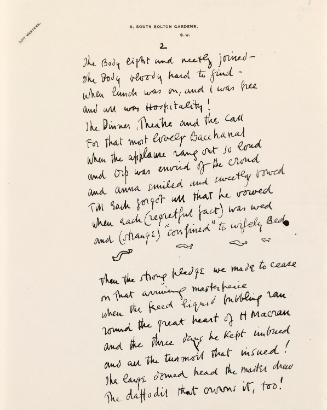 5, SOUTH BOLTON GARDENS,
S.W.
2
The Body light and neatly joined –
The Body bloody hard to find –
When lunch was on, and I was free
and all was Hospitality!
The Dinner, Theatre and the Call
For that most lovely Bacchanal
When the applause rang out so loud
and Orp was envied of the crowd
and anna smiled and sweetly vowed
Till Each forgot all that he vowed
When each (regretful fact) was wed
and (strange) "confined" to wifely Bed.
Then the strong pledge we made to cease
on that arriving masterpiece
when the freed liquid bubbling ran
round the great heart of H Macran
and the three days he kept unbued
and all the turmoil that issued!
The large domed head the master drew
The daffodil that crowns it, too!